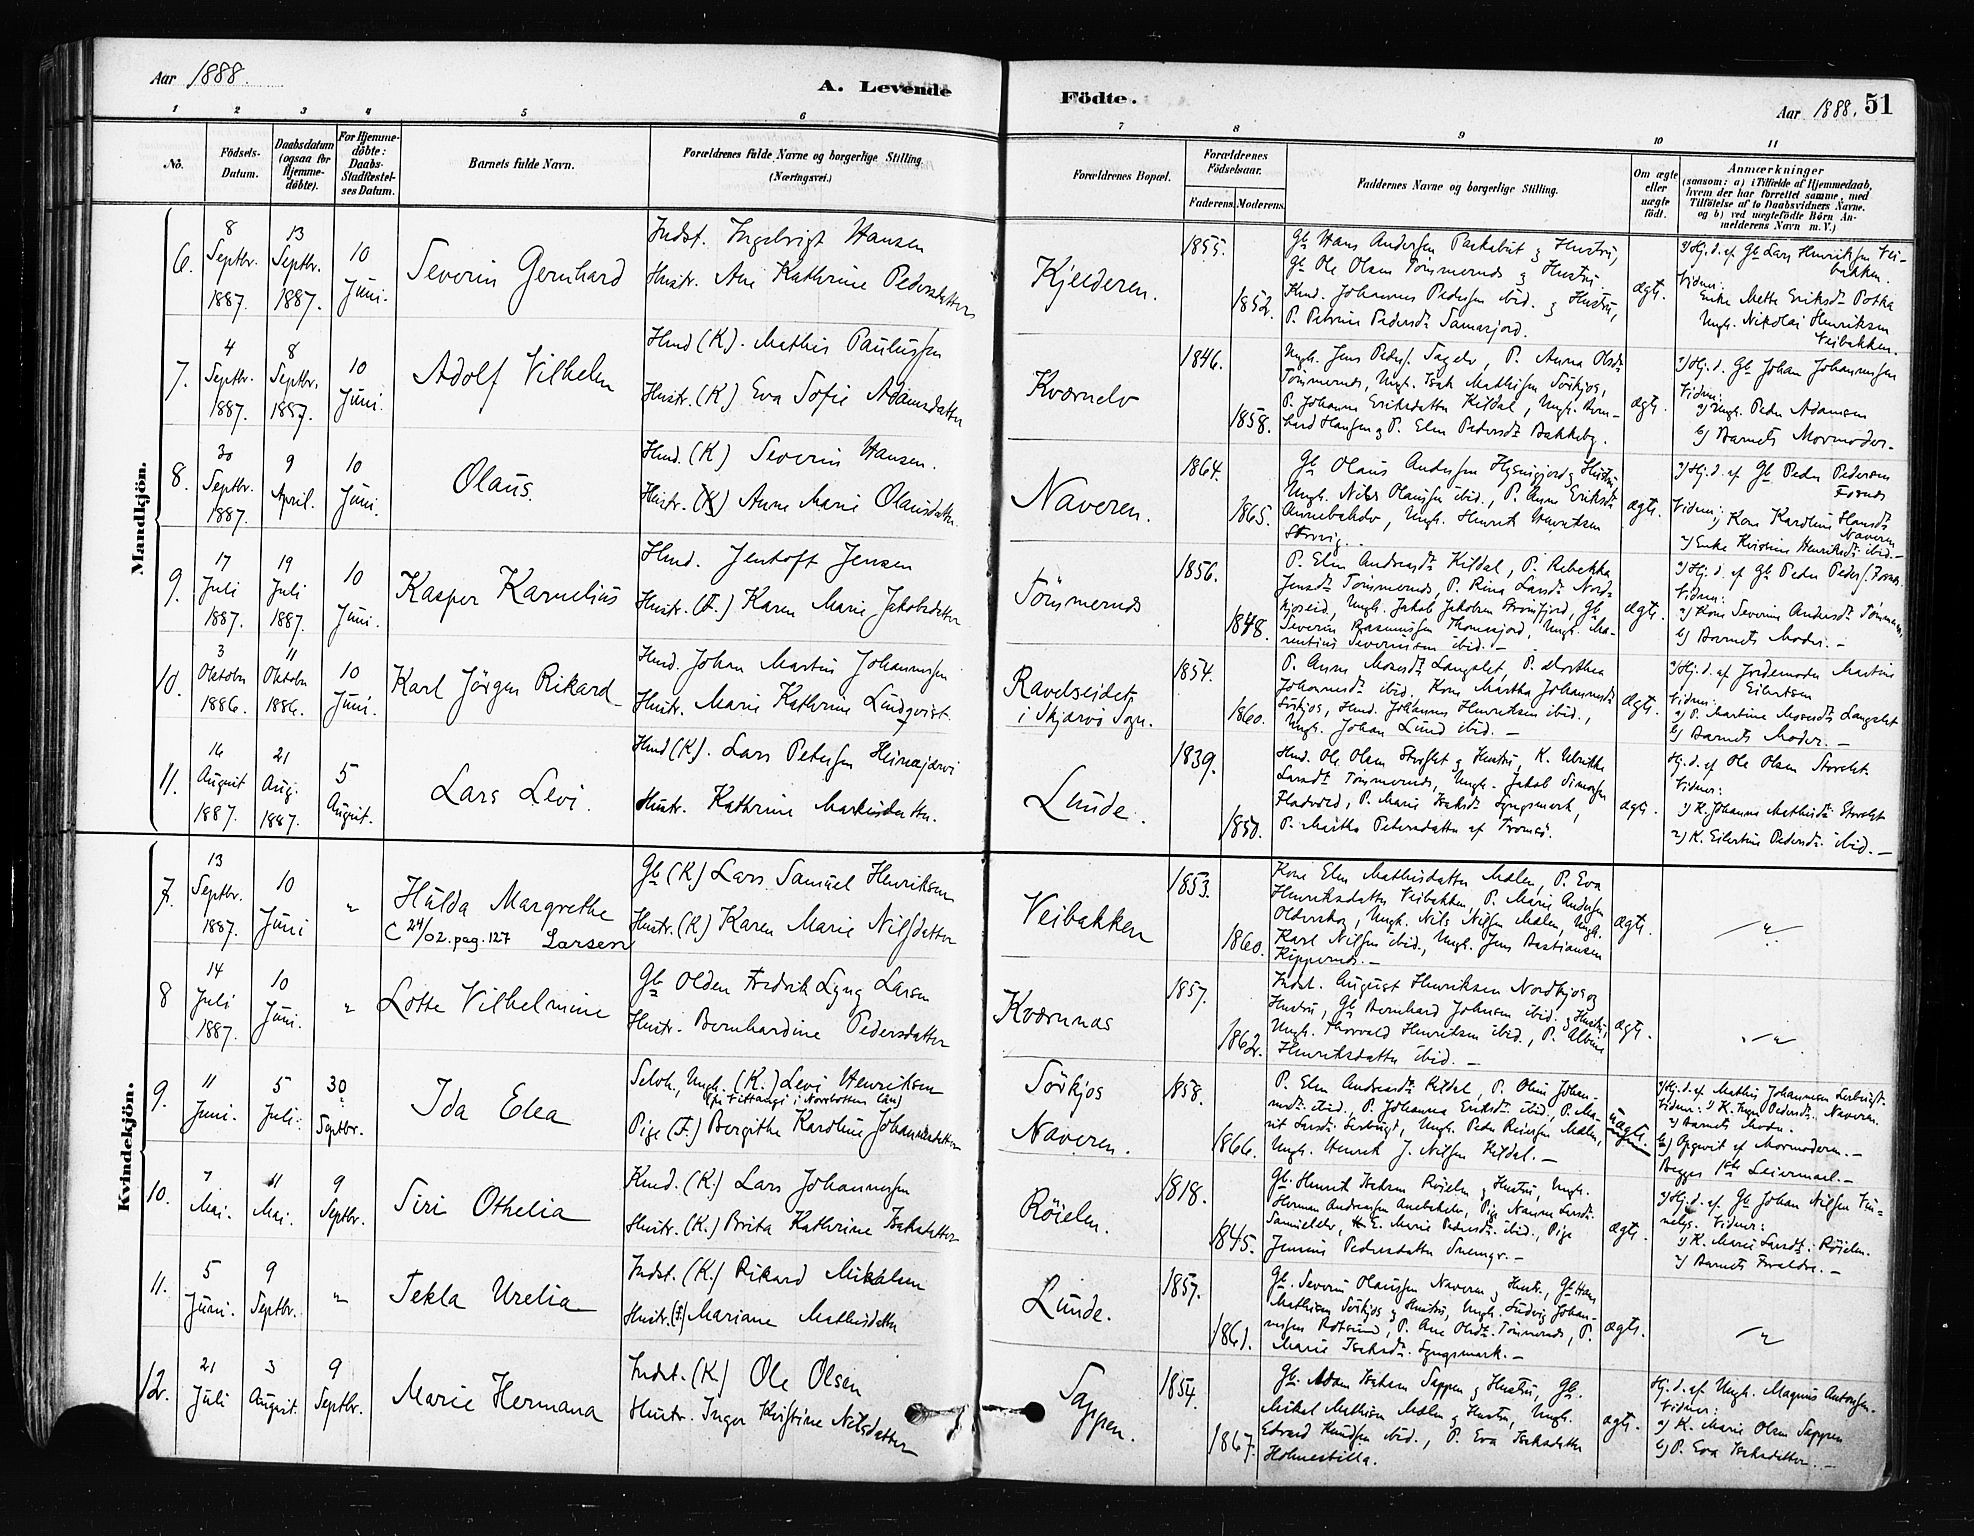 Aar 1888.
A. Levende
Födte.
Aar 1888.
51
1 2 3 4 5 6 7 8 9 10 11
No.
Födsels-Datum.
Daabsdatum (ogsaa for Hjemme-döbte).
For Hjemme-döbte: Daabs-Stadfæstel-ses Datum.
Barnets fulde Navn.
Forældrenes fulde Navne og borgerlige Stilling.
(Næringsvei.)
Forældrenes Bopæl.
Forældrenes Födselsaar.
Faderens. Moderens.
Faddernes Navne og borgerlige Stilling.
Om ægte eller uægte födt.
Anmærkninger
(saasom: a) i Tilfælde af Hjemmedaab, hvem der har forrettet samme, med Tilföielse af to Daabsvidners Navne. og b) ved uægtefödte Börn An-melderens Navn m. V.)
Mandkjön.
6.
8 Septbr. 1887.
13 Septbr. 1887.
10 Juni.
Severin Gernhard
Indst. Ingebrigt Hansen
Hustr. Ane Kathrine Pedersdatter
Kjelderen.
1855.
1852.
Gb Hans Andersen & Hustru,
Gb Ole Olsen Tömmernes & Hustru
Johannes Pedersen ibid. & Hustru,
P. Petrine Pedersdt Samasjord.
ægt.
Hj. d. af Gb Lars Henriksen Vei-
bakken.
Vidner:
Enke Mette Eriksdt
Ungk. Nikolai Henriksen
Veibakken.
7.
4 Septbr. 1887.
8 Septbr. 1887.
10 Juni.
Adolf Vilhelm
Hmd (K). Mathis Paulussen
Hustr. (K) Eva Sofie Adamsdatter
Kværnelv
1846.
1858.
Ungk. Jens Peders. , P. Anna Olsdt
Tömmernes, Ungk. Isak Mathisen Sörkjos,
P. Johanne Eriksdatter Kildal, Ungk. Bern-
hard Hansen & P. Elen Pedersdt Bakkeby.
ægt.
Hj. d. Gb Johan Johannessen
Vidner:
a) Ungk. Peder Adamsen
b) Barnets Mormoder.
8.
30 Septbr. 1887.
9 April.
10 Juni.
Olaus.
Hmd. (K) Severin Hansen.
Hustr. (K) Anne Marie Olausdatter.
Naveren.
1864.
1865.
Gb Olaus Andersen & Hustru,
Ungk. Nils Olaussen ibid., P. Anne Eriksdt
, Ungk. Henrik
Storvig.
ægt.
Hj. d. af Gb Peder Pedersen
Vidner:
1) Kone Karoline Hansdt
Naveren
2) Enke Kristine Henriksdt ibid. —
9.
17 Juli 1887.
19 Juli 1887.
10 Juni.
Kasper Karnelius
Hmd. Jentoft Jensen
Hustr. (F.) Karen Marie Jakobsdatter
Tömmernes
1856.
1848.
P. Elen Andreasdt Kildal, P. Rebekka
Jensdt Tömmernes, P. Rina Larsdt Nord-
kjoseid, Ungk. Jakob Jakobsen Straumfjord, Gb
Severin Rasmussen Thomasjord, Ungk. Ma-
rentius Severinsen ibid. —
ægt.
Hj. d. af Gb Peder Peders.
Vidner:
a) Kone Severine Andersdt Tömmernes,
b) Barnets Moder. —
10.
3 Oktober 1886.
11 Oktober 1886.
10 Juni.
Karl Jörgen Rikard
Hmd. Johan Martin Johannessen
Hustr. Marie Kathrine Lindqvist.
Ravelseidet,
i Skjervö Sogn.
1854.
1860.
P. Anne Monsdt Langslet, P. Dorthea
Johannesdt ibid., Kone Martha Johannesdt
Sörkjos, Hmd. Johannes Henriksen ibid.,
Ungk. Johan Lund ibid. —
ægt.
Hj. d. af Jordemoder Martine
Eilertsen
Vidner:
a) P. Martine Monsdt Langslet
b) Barnets Moder. —
11.
16 August 1887.
21 Aug. 1887.
5 August.
Lars Levi.
Hmd (K). Lars Petersen Heinajærvi
Hustr. Kathrine Markusdatter.
Lunde.
1839.
1850.
Hmd. Ole Olsen Storslet & Hustru, K. Ulrikke
Larsdt Tömmernes, Ungk. Jakob Simonsen
Fladvold, P. Marie Isaksdt Lyngsmark,
P. Martha Petersdatter af Tromsö.
ægt.
Hj. d. af Ole Olsen Storslet.
Vidner:
1) K. Johanne Mathisdt Storslet
2) K. Eilertine Pedersdt ibid. —
Kvindekjön.
7.
13 Septbr. 1887.
10 Juni
"
Hulda Margrethe
C 24/02. pag. 127 Larsen
Gb (K) Lars Samuel Henriksen
Hustr. (K) Karen Marie Nilsdatter
Veibakken
1853.
1860.
Kone Elen Mathisdatter Mælen, P. Eva
Henriksdatter Veibakken, P. Marie Andersen
Olderskog, Ungk. Nils Nilsen Mælen, Ungk.
Karl Nilsen ibid., Ungk. Jens Bastiansen
Kippernes. —
ægt.
"
8
14 Juli 1887.
10 Juni.
"
Lotte Vilhelmine
Gb Olden Fredrik Lyng Larsen
Hustr. Bernhardine Pedersdatter
Kværnnes
1857.
1862.
Indst. August Henriksen Nordkjos og
Hustru, Gb Bernhard Johnsen ibid. & Hustru,
Ungk. Thorvald Henriksen ibid., P. Albine
Henriksdatter ibid. —
ægt.
"
9.
11 Juni.
5 Juli.
30 Septbr.
Ida Elea
Selvh., Ungk. (K.) Levi Henriksen
(fra Vittangi i Norrbottens län)
Pige (F.) Bergithe Karoline Johannesdatter
Sörkjos
Naveren.
1858.
1866.
P. Elen Andreasdt Kildal, P. Oline Johan-
nesdt. ibid., P. Johanna Eriksdt ibid., P. Ma-
rit Larsdt , Ungk. Peder Mælen,
Ungk. Henrik J. Nilsen Kildal. —
uægt.
Hj. d. af Mathis Johannesen
Vidner: 1) K. Pedersdt. Naveren.
2) Barnets Moder.
b) Opgivet af Mormoderen. —
Begges 1ste Leiermaal. —
10.
7 Mai.
11 Mai.
9 Septbr.
Siri Othelia
Kmd. (K.) Lars Johannessen
Hustr. (K.) Brita Kathrine Isaksdatter
Röielen.
1818.
1845.
Gb. Henrik Isaksen Röielen & Hustru, Ungk.
Herman Andreassen , Pige Nanna Larsdt
Samuelelv, H. E. Marie Pedersdt. ibid., Pige
Jensine Pedersdatter . —
ægt.
a) Hj. d. af Gb Johan Nilsen Vin-
nelys. Vidner:
1) K. Marie Larsdt. Röielen.
2) Barnets Forældre. —
11.
5 Juni.
9 Septbr.
"
Tekla Urelia
Indst. (K.) Rikard Mikkelsen
Hustr. (F.) Mariane Mathisdatter
Lunde.
1857.
1861.
Gb. Severin Olaussen Naveren & Hustr., Gb Hans
Mathisen Sörkjos & Hustru, Ungk. Ludvig Johan-
nessen Rotsund, P. Ane Olsdt. Tömmernes, P.
Marie Isaksdt. Lyngsmark. —
ægt.
"
12.
21 Juli
3 August.
9 Septbr.
Marie Hermana
Indst. (K.) Ole Olsen
Hustr. Inger Kristine Nilsdatter
Sappen.
1854.
1867.
Gb. Adam Isaksen Sappen & Hustru, Gb.
Mikal Mathisen Mælen & Hustru, Ungk.
Edvard Knudsen ibid., P. Eva Isaksdatter
Holmestilla.
ægt.
Hj. d. af Ungk. Magnus Antonsen.
Vidner:
a) K. Marie Olsen Sappen
b) P. Eva Isaksdatter. —